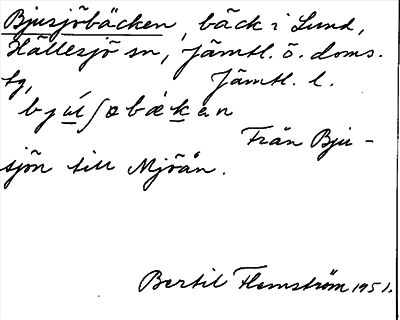 Bjusjöbäcken, bäck i Lund,
Hällesjö sn, Jämtl. ö. doms.
tg, Jämtl. l.
Från Bju-
sjön till Mjöån.
Bertil Flemström 1951.